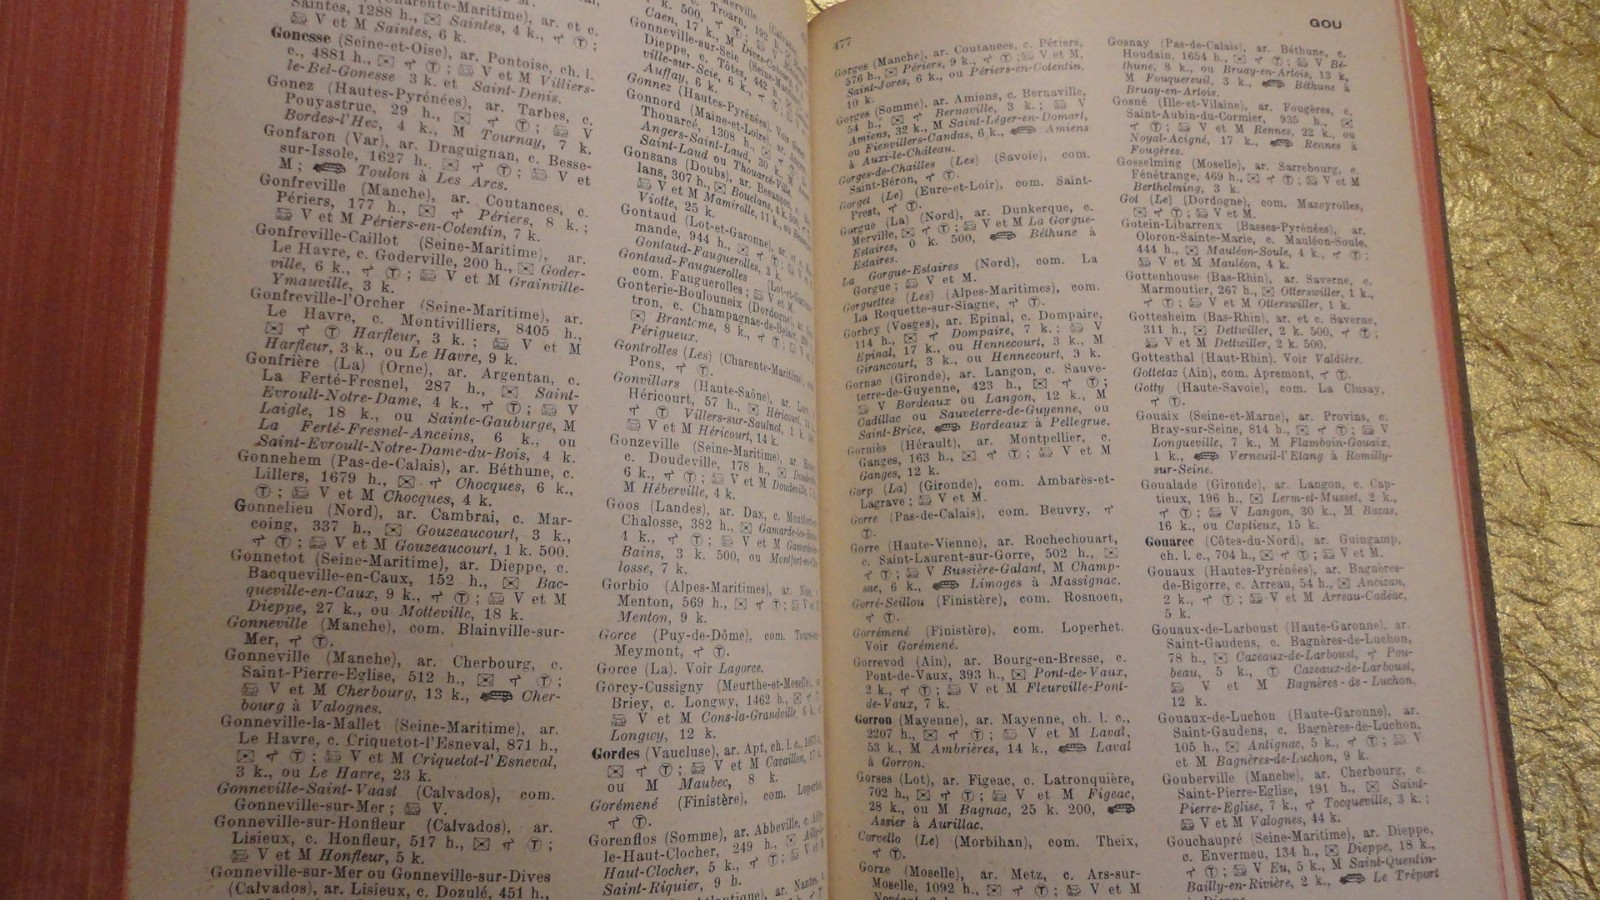 Saintes, 1288 h., Saintes, 4 k.,
V et M Saintes, 6 k.
Gonesse (Seine-et-Oise), ar. Pontoise, ch. l.
c., 4881 h., Ⓣ; V et M Villiers-
le-Bel-Gonesse 3 k. et Saint-Denis.
Gonez (Hautes-Pyrénées), ar. Tarbes, c.
Pouyastruc, 29 h., Ⓣ; V
Bordes-l'Hez, 4 k., M Tournay, 7 k.
Gonfaron (Var), ar. Draguignan, c. Besse-
sur-Issole, 1627 h. Ⓣ; V et
M; Toulon à Les Arcs.
Gonfreville (Manche), ar. Coutances, c.
Périers, 177 h., Périers, 8 k.;
V et M Périers-en-Cotentin, 7 k.
Gonfreville-Caillot (Seine-Maritime), ar.
Le Havre, c. Goderville, 200 h., Goder-
ville, 6 k., Ⓣ; V et M Grainville-
Ymauville, 3 k.
Gonfreville-l'Orcher (Seine-Maritime), ar.
Le Havre, c. Montivilliers, 8405 h.,
Ⓣ Harfleur, 3 k.; V et M
Harfleur, 3 k., ou Le Havre, 9 k.
Gonfrière (La) (Orne), ar. Argentan, c.
La Ferté-Fresnel, 287 h., Saint-
Evroult-Notre-Dame, 4 k., Ⓣ; V
Laigle, 18 k., ou Sainte-Gauburge, M
La Ferté-Fresnel-Anceins, 6 k., ou
Saint-Evroult-Notre-Dame-du-Bois, 4 k.
Gonnehem (Pas-de-Calais), ar. Béthune, c.
Lillers, 1679 h., Chocques, 6 k.,
Ⓣ; V et M Chocques, 4 k.
Gonnelieu (Nord), ar. Cambrai, c. Mar-
coing, 337 h., Gouzeaucourt, 3 k.,
Ⓣ; V et M Gouzeaucourt, 1 k. 500.
Gonnetot (Seine-Maritime), ar. Dieppe, c.
Bacqueville-en-Caux, 152 h., Bac-
queville-en-Caux, 9 k., Ⓣ; V et M
Dieppe, 27 k., ou Motteville, 18 k.
Gonneville (Manche), com. Blainville-sur-
Mer, Ⓣ.
Gonneville (Manche), ar. Cherbourg, c.
Saint-Pierre-Eglise, 512 h., Ⓣ;
V et M Cherbourg, 13 k., Cher-
bourg à Valognes.
Gonneville-la-Mallet (Seine-Maritime), ar.
Le Havre, c. Criquetot-l'Esneval, 871 h.,
Ⓣ; V et M Criquetot-l'Esneval,
3 k., ou Le Havre, 23 k.
Gonneville-Saint-Vaast (Calvados), com.
Gonneville-sur-Mer; V.
Gonneville-sur-Honfleur (Calvados), ar.
Lisieux, c. Honfleur, 517 h., Ⓣ;
V et M Honfleur, 5 k.
Gonneville-sur-Mer ou Gonneville-sur-Dives
(Calvados), ar. Lisieux, c. Dozulé, 451 h.,
Gonneville-sur-Scie (Seine-
Dieppe, c. Tôtes, 442
ville-sur-Scie, 6 k.,
Auffay, 6 k.
Gonnez (Hautes-Pyrénées). Voir
Gonnord (Maine-et-Loire),
Thouarcé, 1308 h.,
Angers-Saint-Laud, 30
Saint-Laud ou Thouarcé-Ville
Gonsans (Doubs), ar. Besançon,
lans, 307 h., Bouclans, 4 k.
V et M Mamirolle, 11 k., ou
Violte, 25 k.
Gontaud (Lot-et-Garonne), ar.
mande, 944 h.,
Gontaud-Fauguerolles, 3 k.
Gontaud-Fauguerolles (Lot-et-
com. Fauguerolles; V et M.
Gonterie-Boulouneix (Dordogne),
tron, c. Champagnac-de-Belair,
Brantôme, 8 k.,
Périgueux.
Gontrolles (Les) (Charente-Maritime),
Pons, Ⓣ.
Gonvillars (Haute-Saône), ar. Lure,
Héricourt, 57 h., Héricourt,
Ⓣ Villers-sur-Saulnot, 1 k.
V et M Héricourt, 14 k.
Gonzeville (Seine-Maritime), ar.
c. Doudeville, 178 h.,
6 k., Ⓣ; V et M Doudeville,
M Héberville, 4 k.
Goos (Landes), ar. Dax, c. Montfort-
Chalosse, 382 h., Gamarde-les-
4 k., Ⓣ; V et M Gamarde-
Bains, 3 k. 500, ou Montfort-
losse, 7 k.
Gorbio (Alpes-Maritimes), ar. Nice,
Menton, 569 h., Ⓣ; V et
Menton, 9 k.
Gorce (Puy-de-Dôme), com.
Meymont, Ⓣ.
Gorce (La). Voir Lagorce.
Gorcy-Cussigny (Meurthe-et-Moselle),
Briey, c. Longwy, 1462 h.,
V et M Cons-la-Grandville, 6 k.
Longwy, 12 k.
Gordes (Vaucluse), ar. Apt, ch. l. c.,
Ⓣ; V et M Cavaillon, 17 k.,
ou M Maubec, 8 k.
Gorémené (Finistère), com. Loperhet
Ⓣ.
Gorenflos (Somme), ar. Abbeville, c.
le-Haut-Clocher, 249 h.,
Haut-Clocher, 5 k., Ⓣ;
Saint-Riquier, 9 h.
477
Gorges (Manche), ar. Coutances, c. Périers,
576 h., Périers, 9 k., Ⓣ; V et M,
Saint-Jores, 6 k., ou Périers-en-Cotentin.
10 k.
Gorges (Somme), ar. Amiens, c. Bernaville,
54 h., Bernaville, 3 k.; V
Amiens, 32 k., M Saint-Léger-en-Domart,
ou Fienvillers-Candas, 6 k., Amiens
à Auxi-le-Château.
Gorges-de-Chailles (Les) (Savoie), com.
Saint-Béron, Ⓣ.
Gorget (Le) (Eure-et-Loir), com. Saint-
Prest, Ⓣ.
Gorgue (La) (Nord), ar. Dunkerque, c.
Merville, Ⓣ; V et M La Gorgue-
Estaires, 0 k. 500, Béthune à
Estaires.
La Gorgue-Estaires (Nord), com. La
Gorgue; V et M.
Gorguettes (Les) (Alpes-Maritimes), com.
La Roquette-sur-Siagne, Ⓣ.
Gorhey (Vosges), ar. Epinal, c. Dompaire,
114 h., Dompaire, 7 k.; V
Epinal, 17 k., ou Hennecourt, 3 k., M
Girancourt, 3 k., ou Hennecourt, 3 k.
Gornac (Gironde), ar. Langon, c. Sauve-
terre-de-Guyenne, 423 h., Ⓣ;
V Bordeaux ou Langon, 12 k., M
Cadillac ou Sauveterre-de-Guyenne, ou
Saint-Brice, Bordeaux à Pellegrue.
Gorniès (Hérault), ar. Montpellier, c.
Ganges, 163 h., Ⓣ; V et M
Ganges, 12 k.
Gorp (La) (Gironde), com. Ambarès-et-
Lagrave; V et M.
Gorre (Pas-de-Calais), com. Beuvry,
Ⓣ.
Gorre (Haute-Vienne), ar. Rochechouart,
c. Saint-Laurent-sur-Gorre, 502 h.,
Ⓣ; V Bussière-Galant, M Champ-
sac, 6 k., Limoges à Massignac.
Gorré-Seillou (Finistère), com. Rosnoen,
Ⓣ.
Gorrémené (Finistère), com. Loperhet.
Voir Gorémené.
Gorrevod (Ain), ar. Bourg-en-Bresse, c.
Pont-de-Vaux, 393 h., Pont-de-Vaux,
2 k., Ⓣ; V et M Fleurville-Pont-
de-Vaux, 7 k.
Gorron (Mayenne), ar. Mayenne, ch. l. c.,
2207 h., Ⓣ; V et M Laval,
53 k., M Ambrières, 14 k., Laval
à Gorron.
Gorses (Lot), ar. Figeac, c. Latronquière,
702 h., Ⓣ; V et M Figeac,
28 k., ou M Bagnac, 25 k. 200,
Assier à Aurillac.
Corvello (Le) (Morbihan), com. Theix,
Ⓣ.
Gorze (Moselle), ar. Metz, c. Ars-sur-
Moselle, 1092 h., Ⓣ; V et M
GOU
Gosnay (Pas-de-Calais), ar. Béthune, c.
Houdain, 1654 h., Ⓣ; V Bé-
thune, 8 k., ou Bruay-en-Artois, 13 k,
M Fouquereuil, 3 k., Béthune à
Bruay-en-Artois.
Gosné (Ille-et-Vilaine), ar. Fougères, c.
Saint-Aubin-du-Cormier, 935 h.,
Ⓣ; V et M Rennes, 22 k., ou
Noyal-Acigné, 17 k., Rennes à
Fougères.
Gosselming (Moselle), ar. Sarrebourg, c.
Fénétrange, 469 h., Ⓣ; V et M
Berthelming, 3 k.
Got (Le) (Dordogne), com. Mazeyrolles,
Ⓣ; V et M.
Gotein-Libarrenx (Basses-Pyrénées), ar.
Oloron-Sainte-Marie, c. Mauléon-Soule,
444 h., Mauléon-Soule, 4 k., Ⓣ;
V et M Mauléon, 4 k.
Gottenhouse (Bas-Rhin), ar. Saverne, c.
Marmoutier, 267 h., Otterswiller, 1 k.,
Ⓣ; V et M Otterswiller, 1 k.
Gottesheim (Bas-Rhin), ar. et c. Saverne,
311 h., Dettwiller, 2 k. 500, Ⓣ;
V et M Dettwiller, 2 k. 500.
Gottesthal (Haut-Rhin). Voir Valdière.
Gottetaz (Ain), com. Apremont, Ⓣ.
Gotty (Haute-Savoie), com. La Clusay,
Ⓣ.
Gouaix (Seine-et-Marne), ar. Provins, c.
Bray-sur-Seine, 814 h., Ⓣ; V
Longueville, 7 k., M Flamboin-Gouaix,
1 k., Verneuil-l'Etang à Romilly-
sur-Seine.
Goualade (Gironde), ar. Langon, c. Cap-
tieux, 196 h., Lerm-et-Musset, 2 k.,
Ⓣ; V Langon, 30 k., M Bazas,
16 k., ou Captieux, 15 k.
Gouarec (Côtes-du-Nord), ar. Guingamp,
ch. l. c., 704 h., Ⓣ; V et M.
Gouaux (Hautes-Pyrénées), ar. Bagnères-
de-Bigorre, c. Arreau, 54 h., Ancizan,
2 k., Ⓣ; V et M Arreau-Cadéac,
5 k.
Gouaux-de-Larboust (Haute-Garonne), ar.
Saint-Gaudens, c. Bagnères-de-Luchon,
78 h., Cazeaux-de-Larboust, Pou-
beau, 5 k., Ⓣ Cazeaux-de-Larboust,
V et M Bagnères-de-Luchon,
12 k.
Gouaux-de-Luchon (Haute-Garonne), ar.
Saint-Gaudens, c. Bagnères-de-Luchon,
105 h., Antignac, 5 k., Ⓣ; V
et M Bagnères-de-Luchon, 9 k.
Gouberville (Manche), ar. Cherbourg, c.
Saint-Pierre-Eglise, 191 h., Saint-
Pierre-Eglise, 7 k., Tocqueville, 3 k.;
V et M Valognes, 44 k.
Gouchaupré (Seine-Maritime), ar. Dieppe,
c. Envermeu, 134 h., Dieppe, 18 k.,
Ⓣ; V Eu, 5 k., M Saint-Quentin-
Bailly-en-Rivière, 2 k., Le Tréport